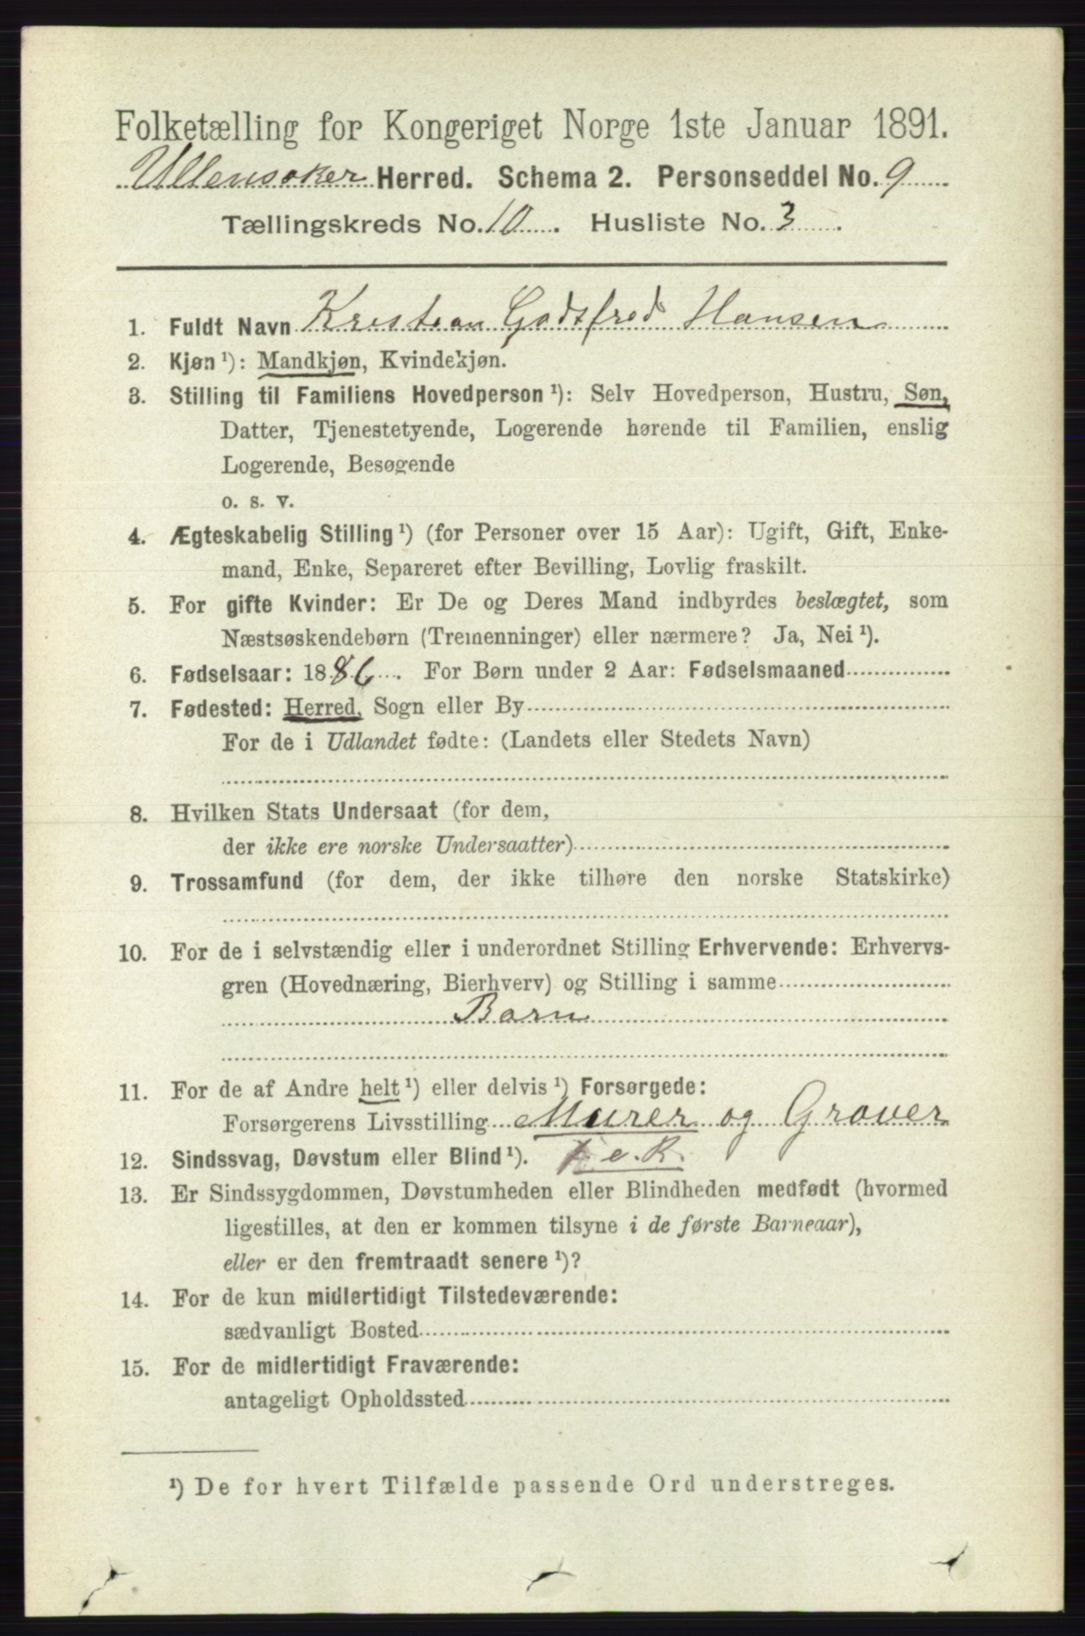 Folketælling for Kongeriget Norge 1ste Januar 1891.
Ullensaker Herred. Schema 2. Personseddel No. 9
Tællingskreds No. 10. Husliste No. 3.
1. Fuldt Navn Kristian Godtfred Hansen
2. Kjøn ¹): Mandkjøn, Kvindekjøn.
3. Stilling til Familiens Hovedperson ¹): Selv Hovedperson, Hustru, Søn,
Datter, Tjenestetyende, Logerende hørende til Familien, enslig
Logerende, Besøgende
o. s. v.
4. Ægteskabelig Stilling ¹) (for Personer over 15 Aar): Ugift, Gift, Enke-
mand, Enke, Separeret efter Bevilling, Lovlig fraskilt.
5. For gifte Kvinder: Er De og Deres Mand indbyrdes beslægtet, som
Næstsøskendebørn (Tremenninger) eller nærmere? Ja, Nei ¹).
6. Fødselsaar: 1886. For Børn under 2 Aar: Fødselsmaaned
7. Fødested: Herred, Sogn eller By
For de i Udlandet fødte: (Landets eller Stedets Navn)
8. Hvilken Stats Undersaat (for dem,
der ikke ere norske Undersaatter)
9. Trossamfund (for dem, der ikke tilhøre den norske Statskirke)
10. For de i selvstændig eller i underordnet Stilling Erhvervende: Erhvervs-
gren (Hovednæring, Bierhverv) og Stilling i samme
Barn
11. For de af Andre helt ¹) eller delvis ¹) Forsørgede:
Forsørgerens Livsstilling Murer og Graver
12. Sindssvag, Døvstum eller Blind ¹).
13. Er Sindssygdommen, Døvstumheden eller Blindheden medfødt (hvormed
ligestilles, at den er kommen tilsyne i de første Barneaar),
eller er den fremtraadt senere ¹)?
14. For de kun midlertidigt Tilstedeværende:
sædvanligt Bosted
15. For de midlertidigt Fraværende:
antageligt Opholdssted
¹) De for hvert Tilfælde passende Ord understreges.